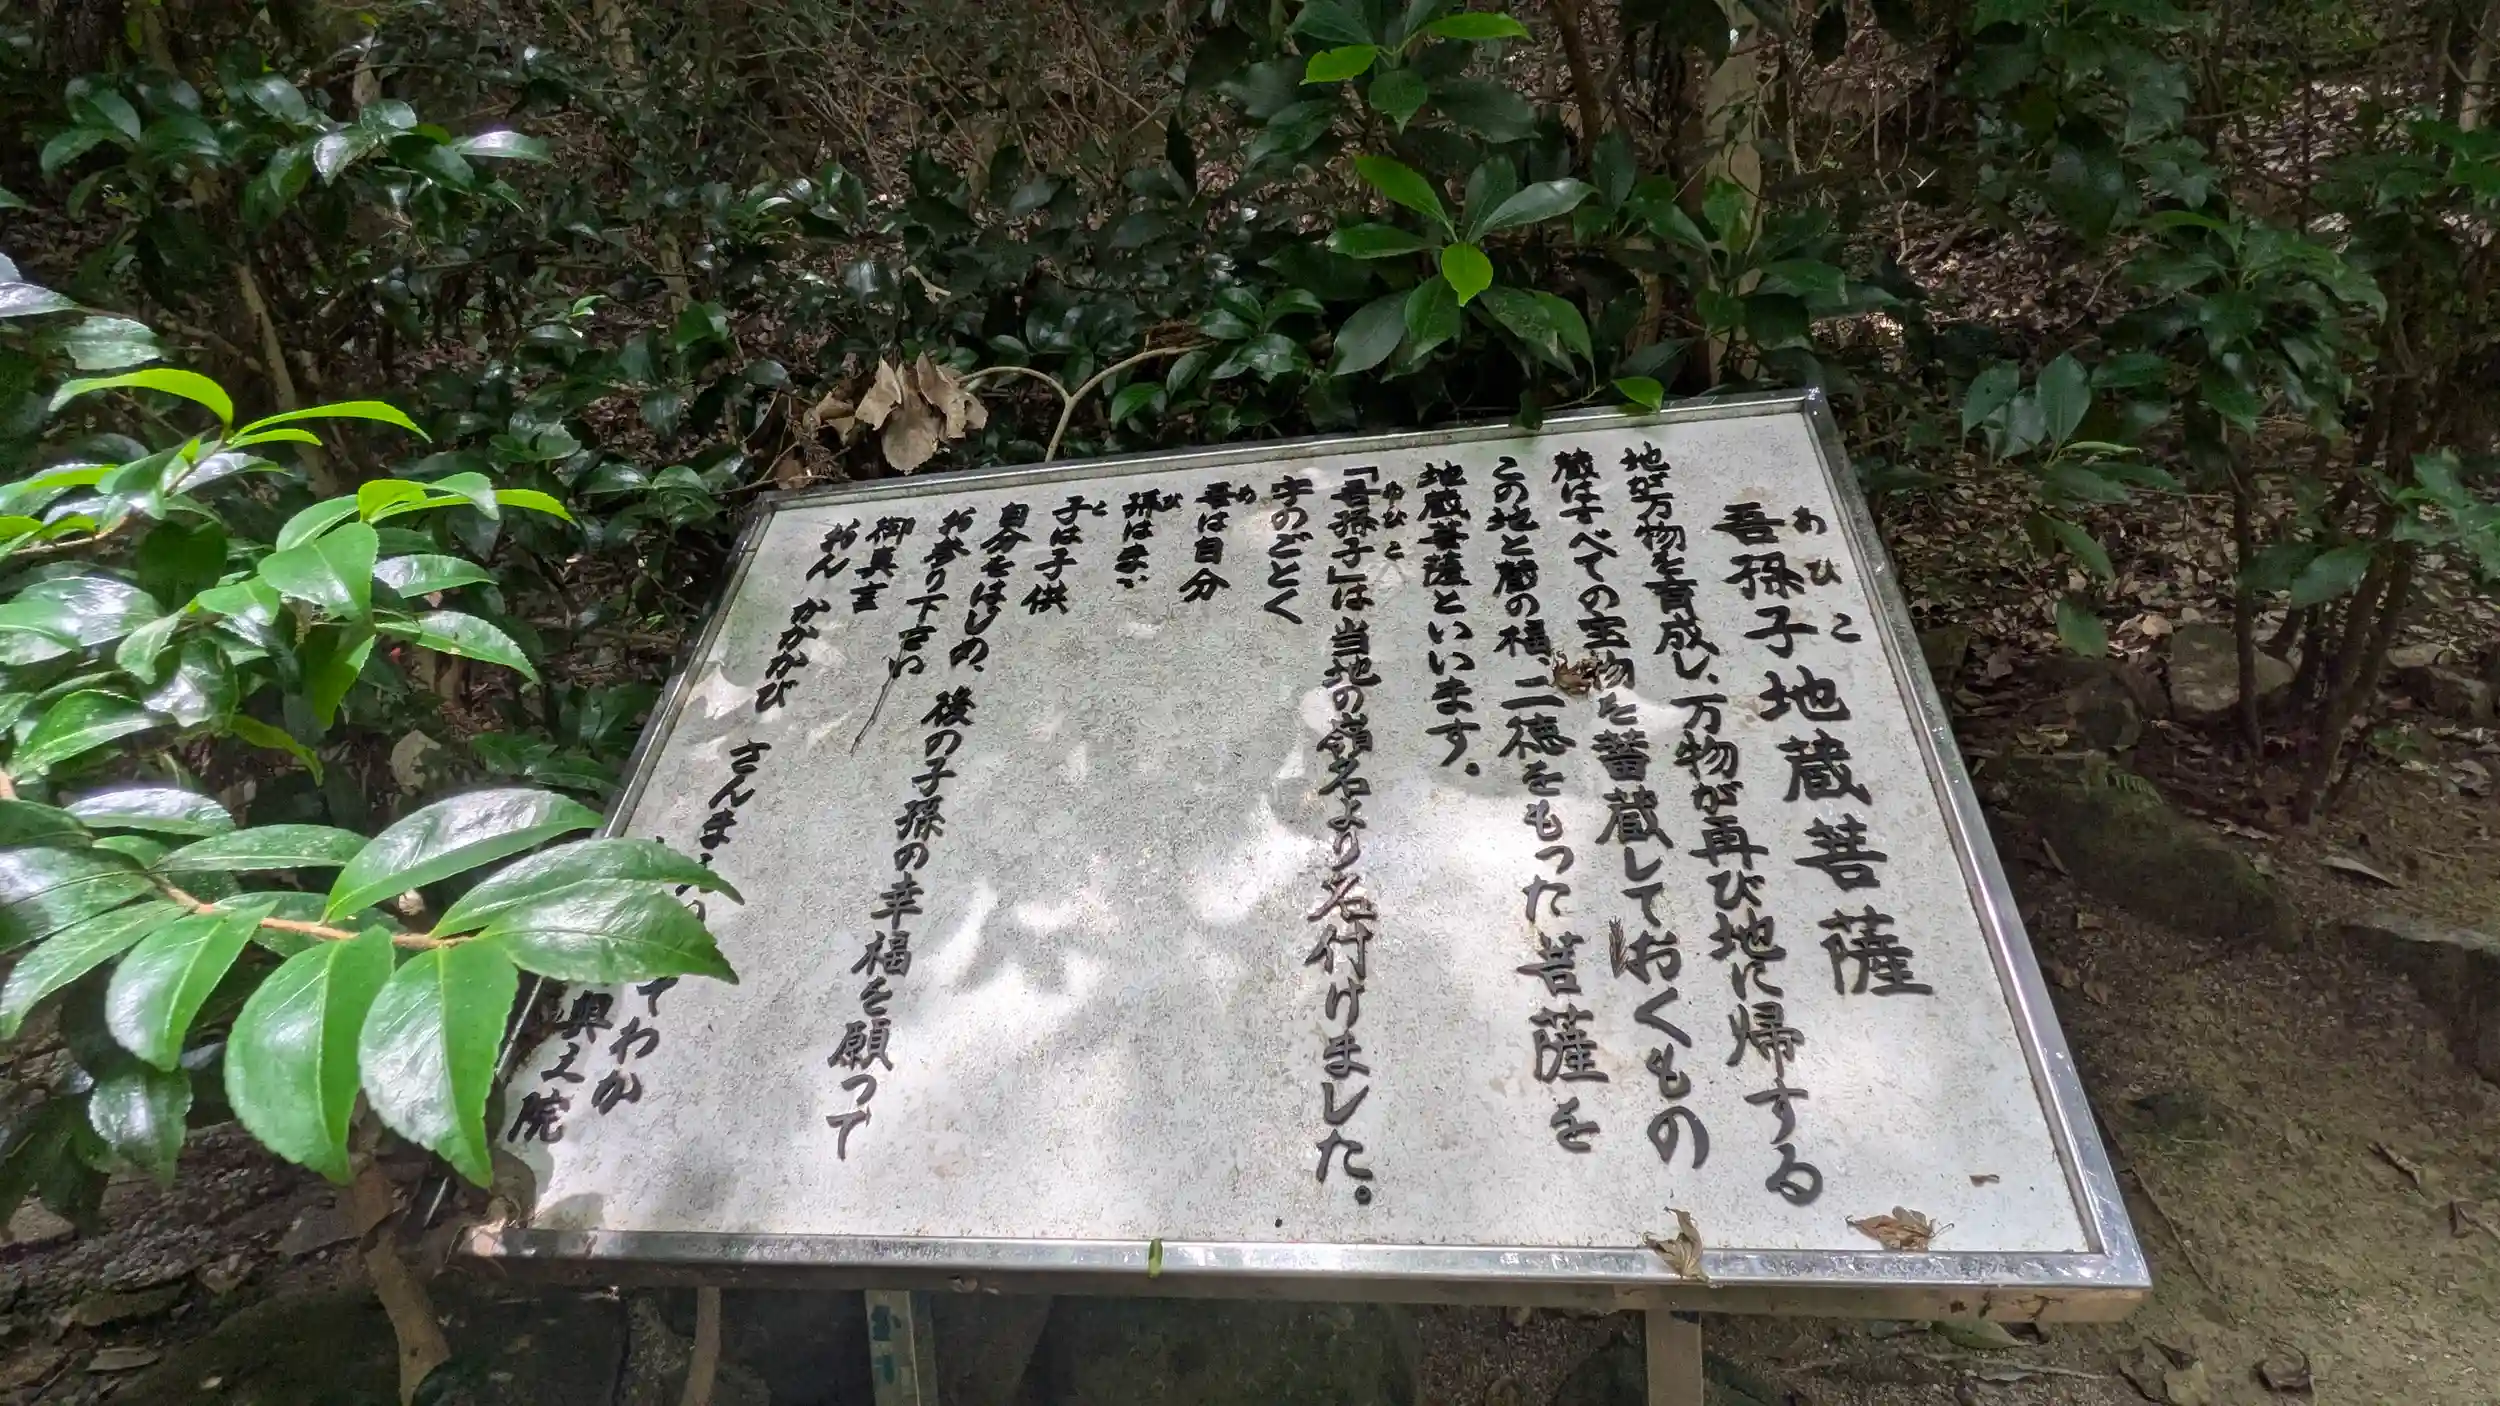 吾孫子地蔵菩薩
あひこ
地は万物を育成し、万物が再び地に帰する
蔵はすべての宝物を蓄蔵しておくもの
この地と蔵の福、二徳をもった菩薩を
地蔵菩薩といいます。
「吾孫子」は当地の嶺名より名付けました。
あひこ
字のごとく
吾は自分
あ
孫はまご
ひ
子は子供
こ
自分をはじめ、後の子孫の幸福を願って
お参り下さい
御真言
おん かかかび さんま てわか
奥之院